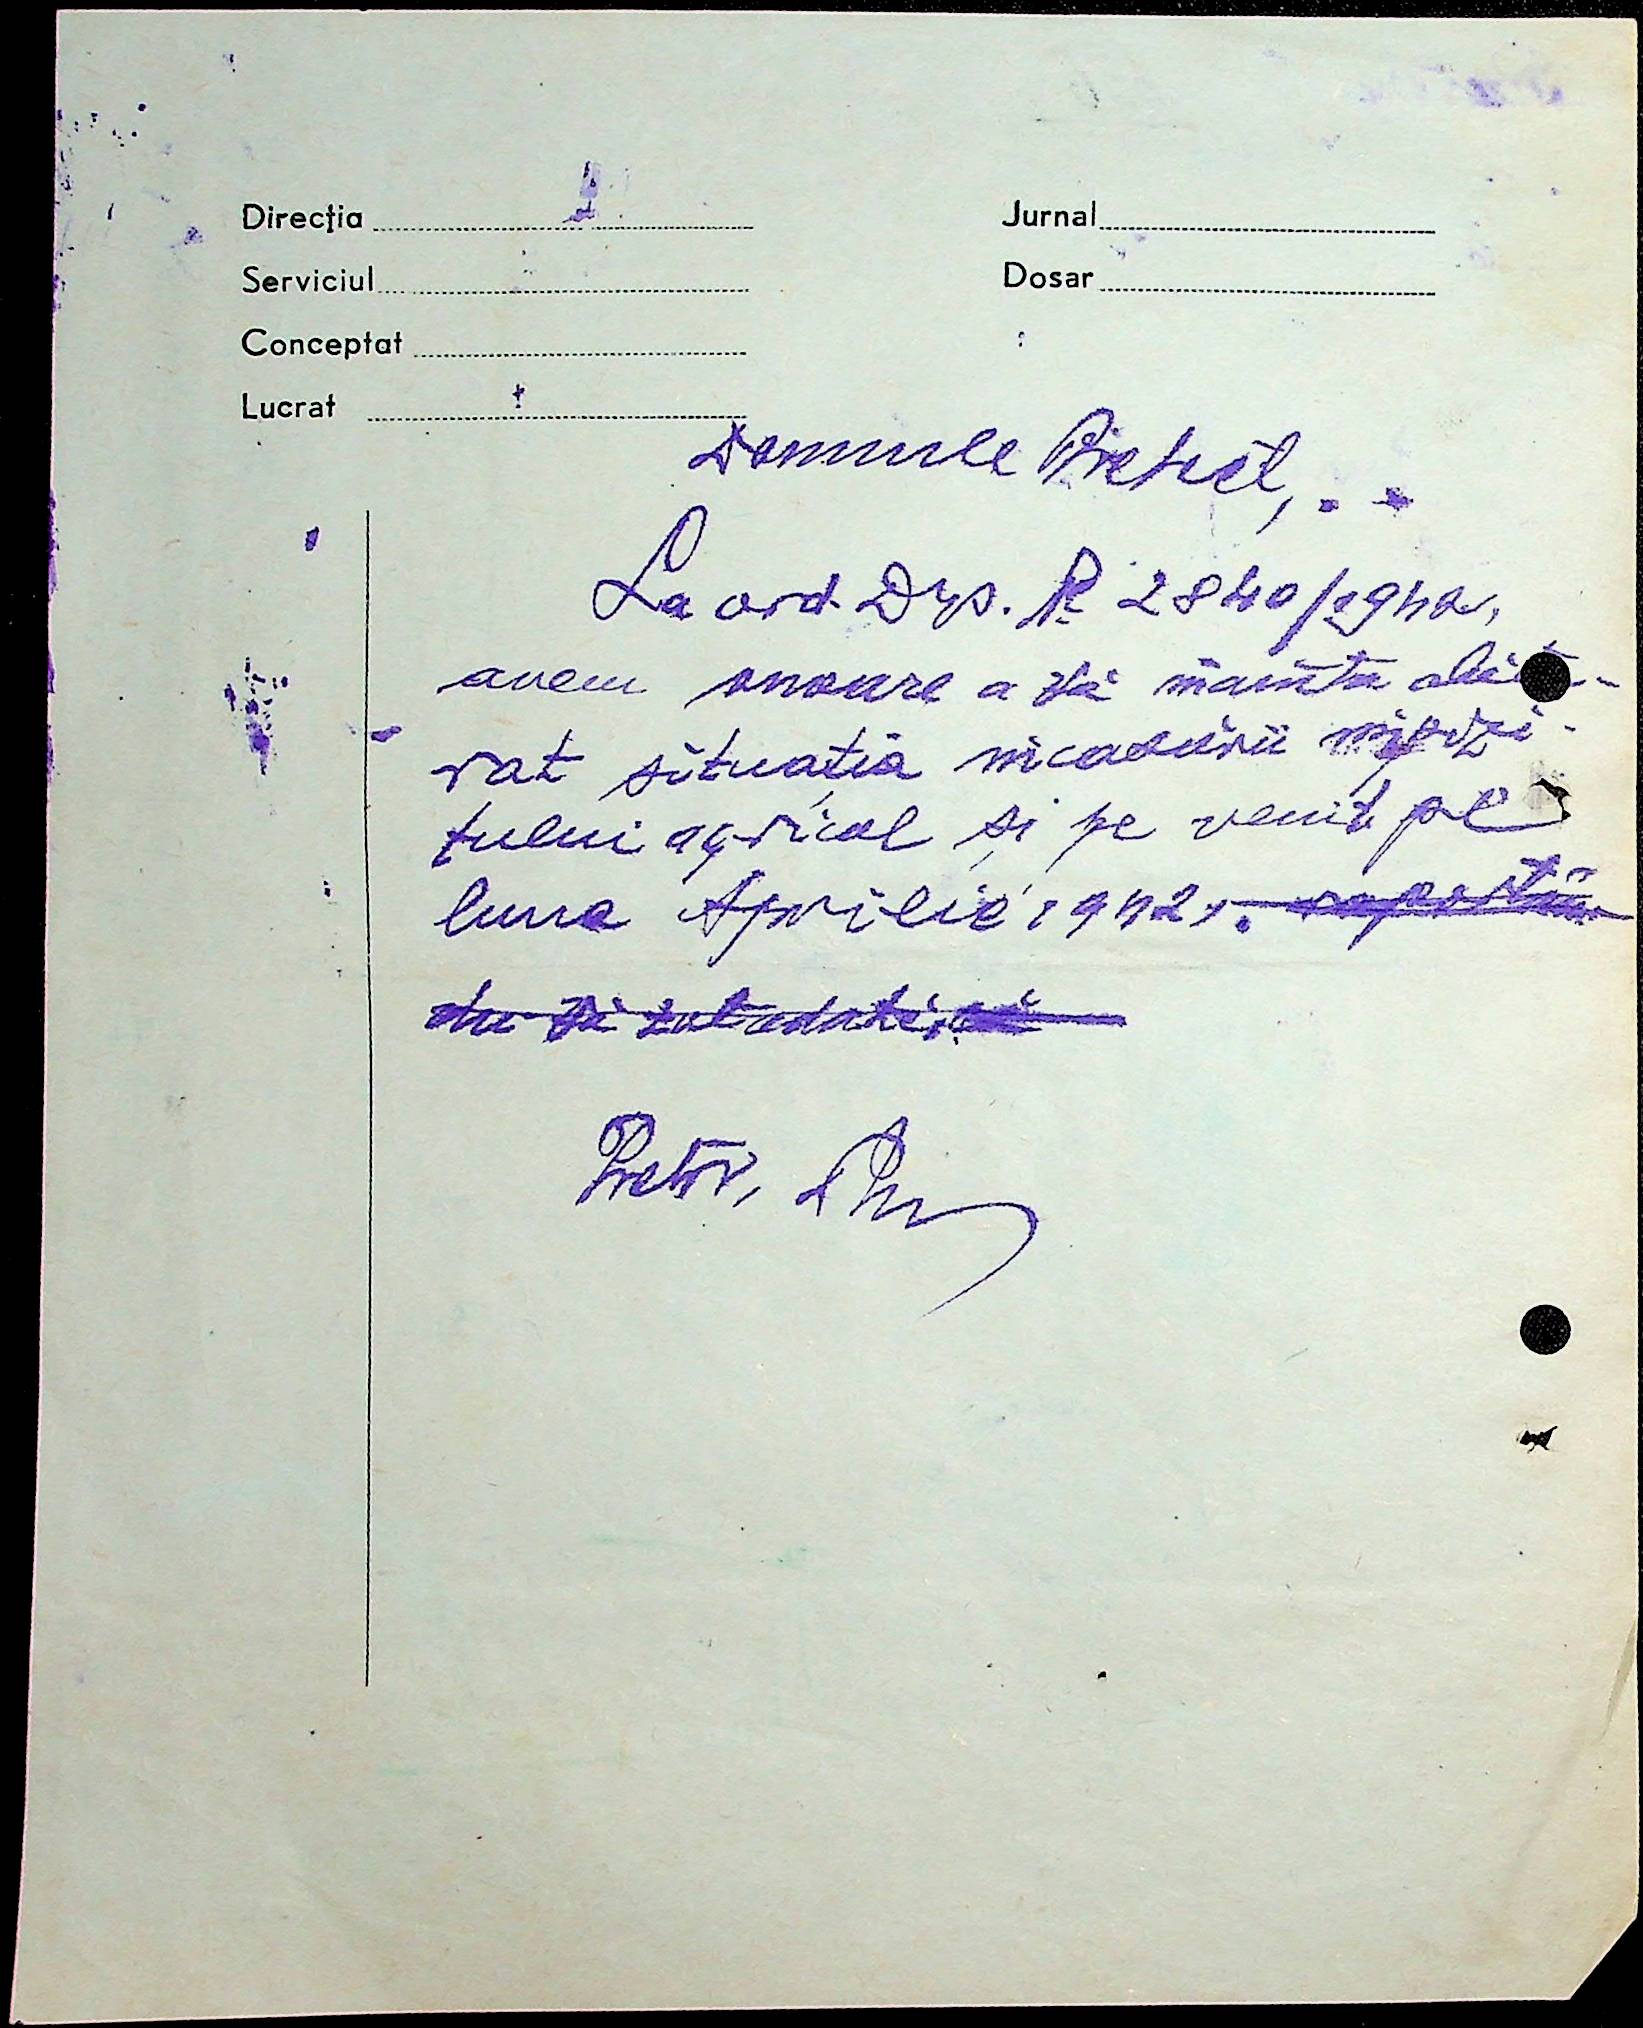 Direcţia
Jurnal
Serviciul
Dosar
Conceptat
Lucrat
Domnule Prefect,
La ord. Dvs. № 2840/1942,
avem onoare a vă înainta alătu-
rat situaţia încasării impozi-
tului agricol şi pe venit pe
luna Aprilie 1942.
Pretor,